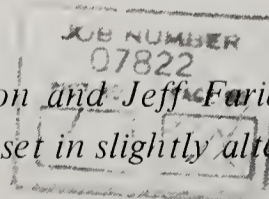 JOB NUMBER
07822
on and Jeff Faric
set in slightly alte